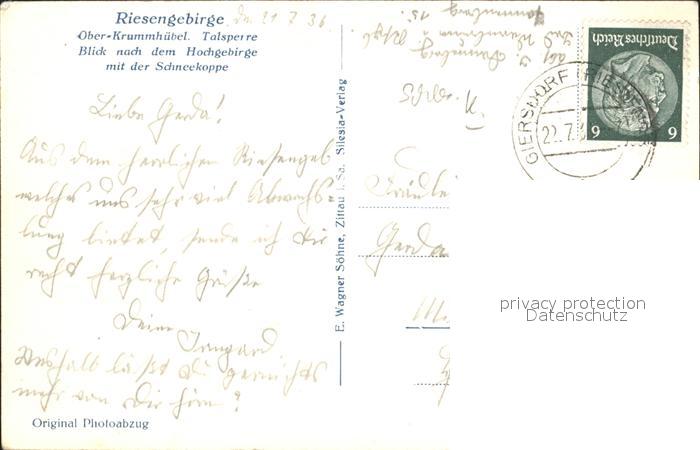 Riesengebirge den 21.7.36
Ober-Krummhübel. Talsperre
Blick nach dem Hochgebirge
mit der Schneekoppe
Liebe Gerda!
Aus dem herrlichen Riesengeb
welches uns sehr viel Abwechs=
lung bietet, sende ich Dir
recht herzliche Grüße
Deine
Irmgard
Weshalb läßt Du garnichts
mehr von Dir hören?
Original Photoabzug
E. Wagner Söhne, Zittau i. Sa. Silesia-Verlag
15.
Fräulei
Gerda
Deutsches Reich
6 6
GIERSDORF (RIESENGEB
22.7.
privacy protection
Datenschutz